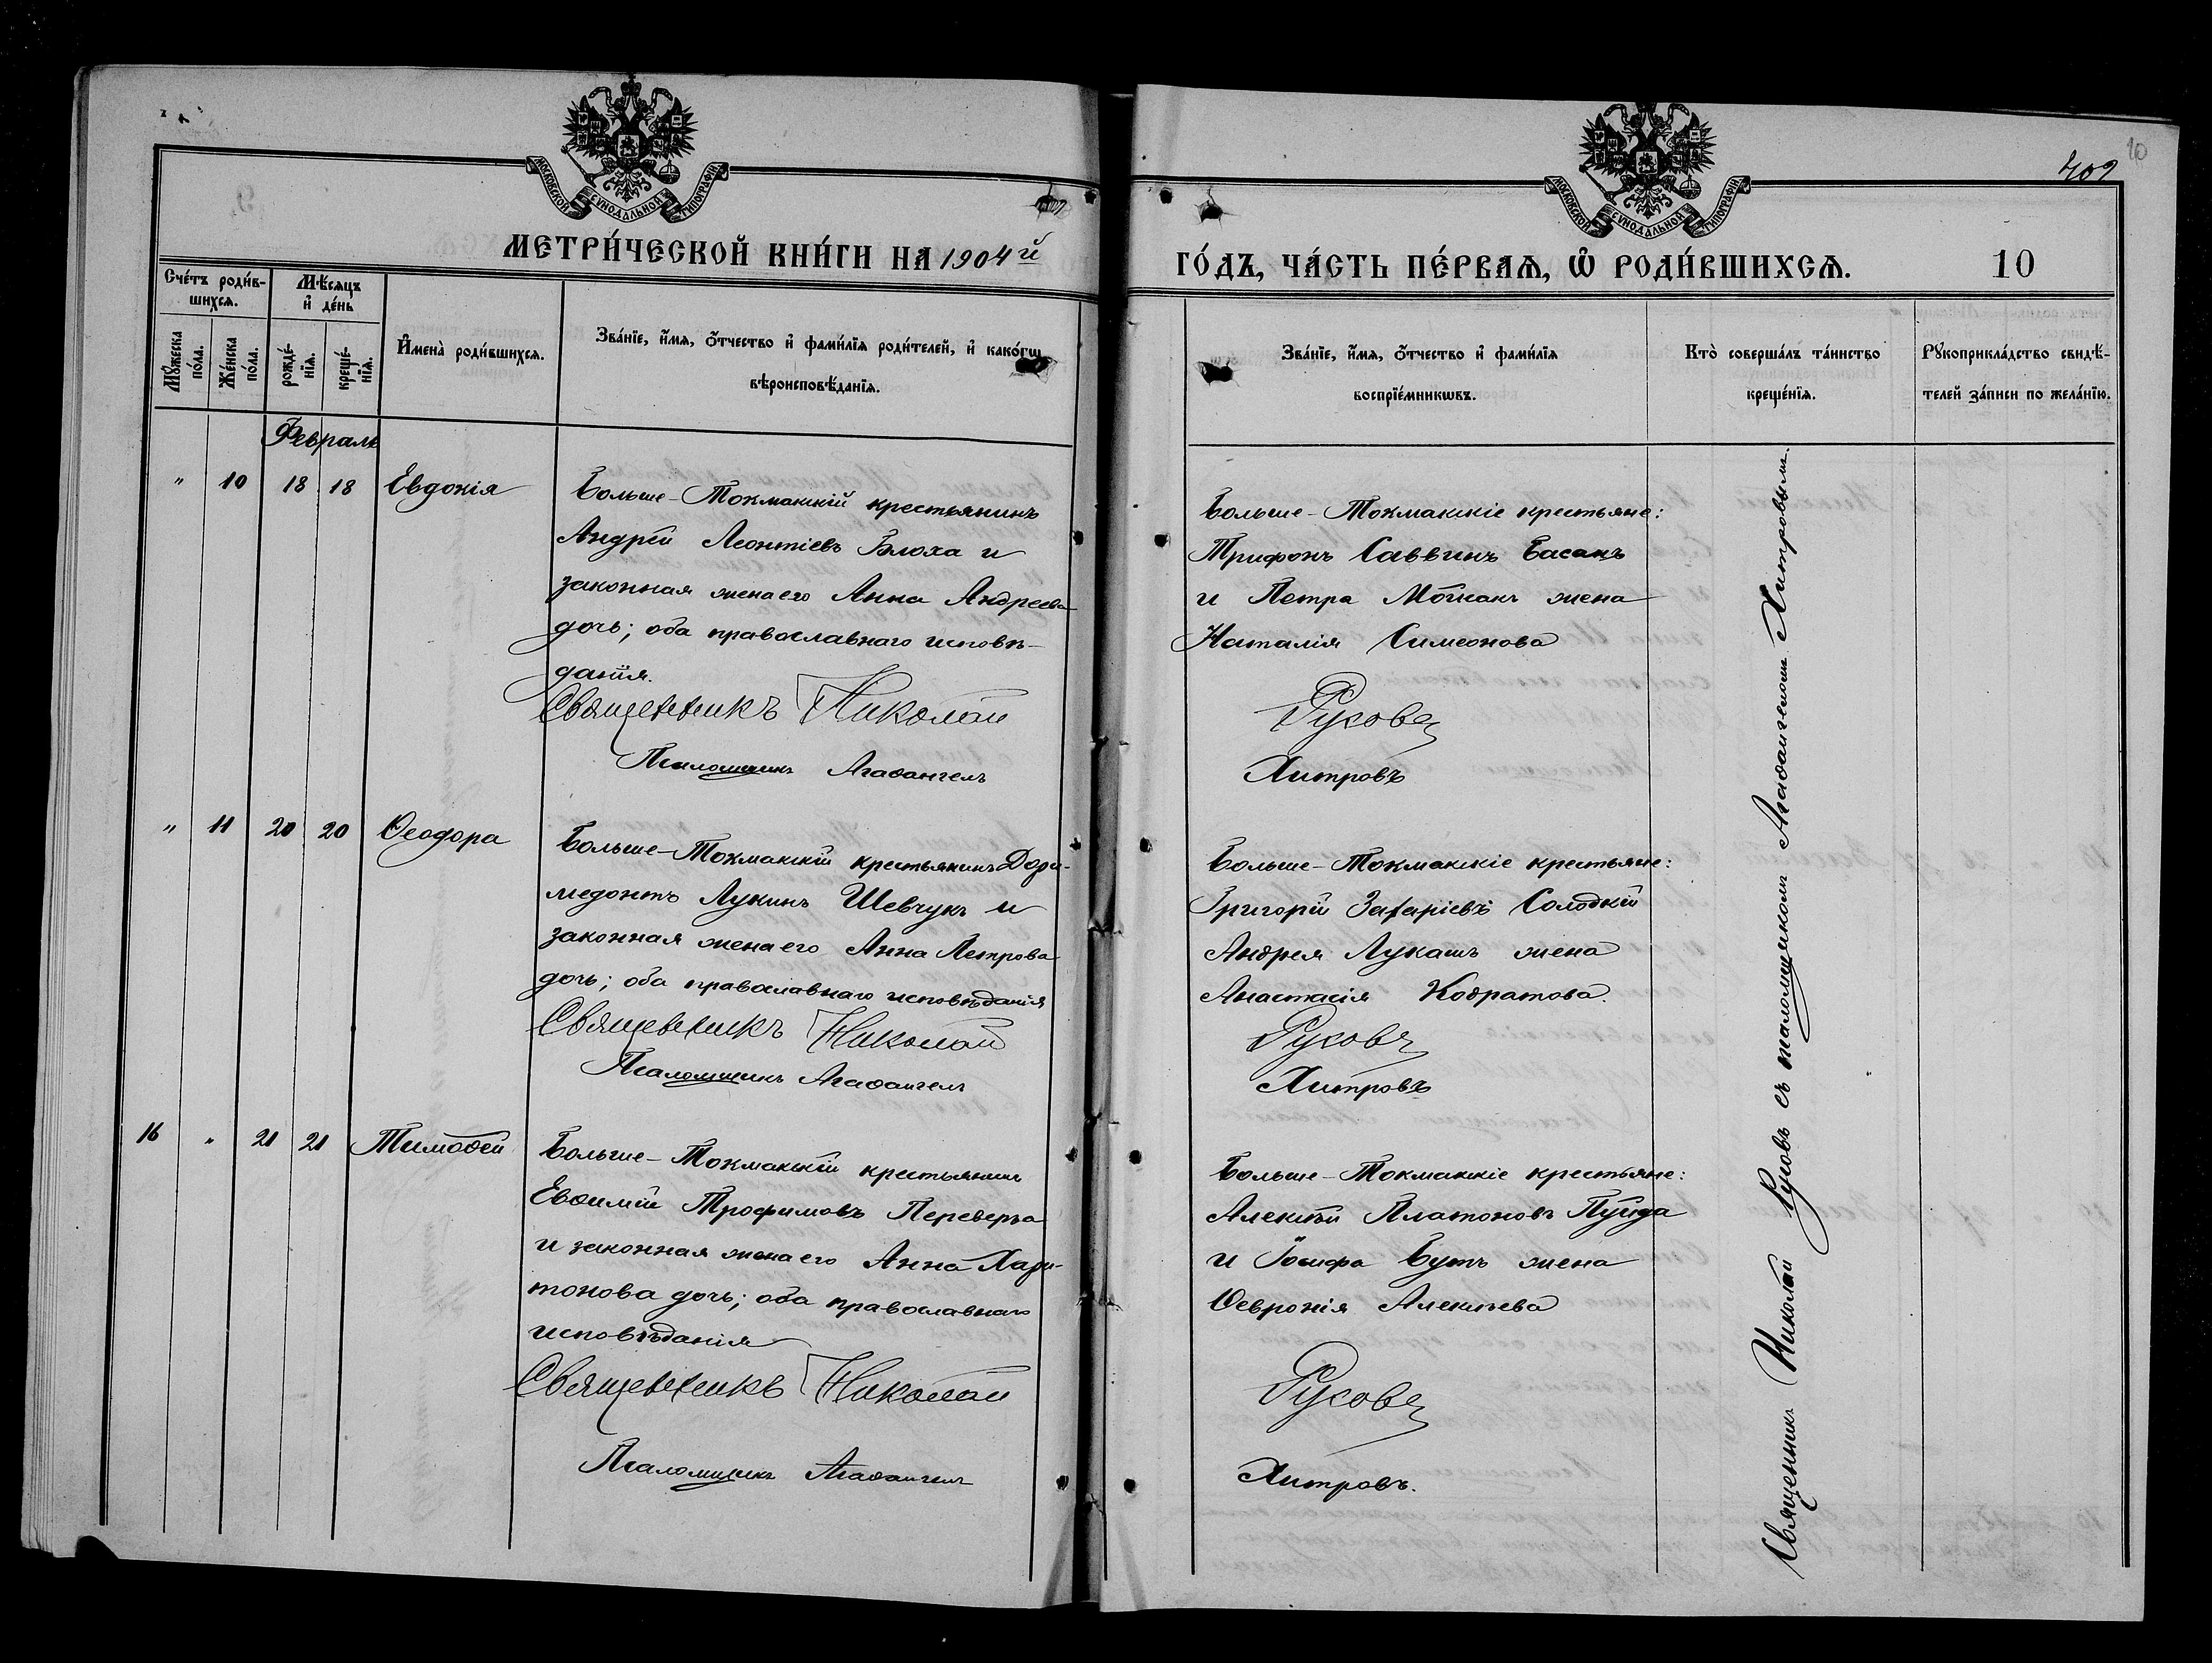 МОСКОВСКОЙ СѴНОДАЛЬНОЙ ТИПОГРАФІИ.
МЕТРИ́ЧЕСКОЙ КНИ́ГИ НА 1904й
Сче́тъ роди́в-
шихсѧ.
Мѣ́сѧцъ
и҆ де́нь
Мꙋ́жеска
по́ла.
Же́нска
по́ла.
рожде́-
нїѧ.
креще́-
нїѧ.
И҆мена̀ роди́вшихсѧ.
Зва́нїе, и҆́мѧ, ѻ҆́тчество и҆ фами́лїѧ роди́телей, и҆ како́гѡ
вѣроисповѣ́данїѧ.
Февраль
" 10 18 18 Евдокія
Больше-Токмакскій крестьянинъ
Андрей Леонтіевъ Блоха и
законная жена его Анна Андреева
дочь; оба православнаго исповѣ-
данія.
Священникъ Николай
Псаломщикъ Агаѳангелъ
" 11 20 20 Ѳеодора
Больше-Токмакскій крестьянинъ Дори-
медонтъ Лукинъ Шевчукъ и
законная жена его Анна Петрова
дочь; оба православнаго исповѣданія
Священникъ Николай
Псаломщикъ Агаѳангелъ
16 " 21 21 Тимоѳей
Больше-Токмакскій крестьянинъ
Евѳимій Трофимовъ Переверза
и законная жена его Анна Хари-
тонова дочь; оба православнаго
исповѣданія
Священникъ Николай
Псаломщикъ Агаѳангелъ
10
409
МОСКОВСКОЙ СѴНОДАЛЬНОЙ ТИПОГРАФІИ.
ГО́ДЪ, ЧА́СТЬ ПЕ́РВАѦ, Ѽ РОДИ́ВШИХСѦ. 10
Зва́нїе, и҆́мѧ, ѻ҆́тчество и҆ фами́лїѧ
воспрїе́мникѡвъ.
Кто̀ соверша́лъ та́инство
креще́нїѧ.
Рꙋкоприкла́дство свидѣ́-
телей за́писи по жела́нїю.
Больше-Токмакскіе крестьяне:
Трифонъ Саввинъ Басанъ
и Петра жена
Наталія Симеонова
Руновъ
Хитровъ
Больше-Токмакскіе крестьяне:
Григорій Захаріевъ Солодкій
Андрея Лукашъ жена
Анастасія Кодратова.
Руновъ
Хитровъ
Больше-Токмакскіе крестьяне:
Алексѣй Платоновъ
и Іосифа Бутъ жена
Ѳевронія Алексѣева
Руновъ
Хитровъ.
Священникъ Николай Руновъ съ псаломщикомъ Агаѳангеломъ Хитровымъ.